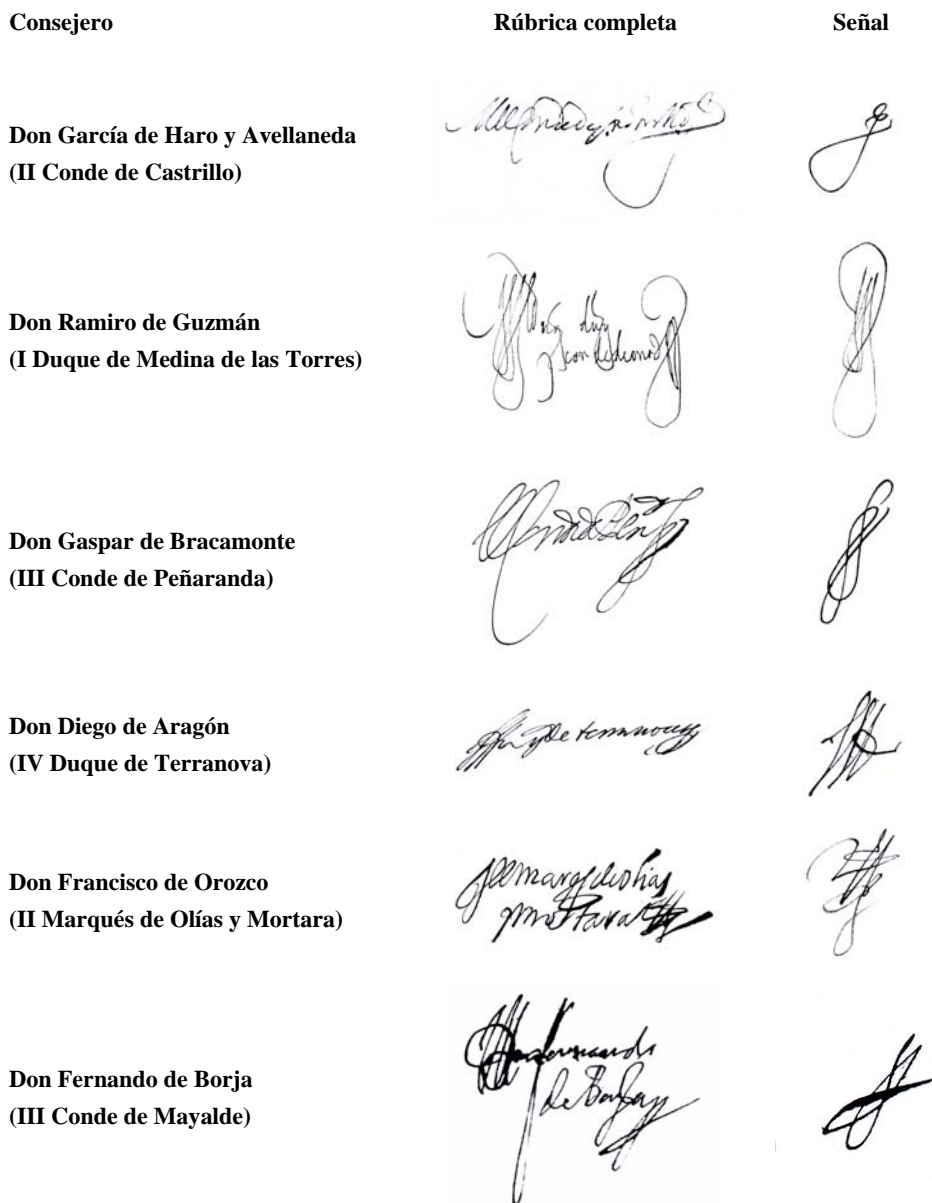 Consejero Rúbrica completa Señal
Don García de Haro y Avellaneda
(II Conde de Castrillo)
Don Ramiro de Guzmán
(I Duque de Medina de las Torres)
Don Gaspar de Bracamonte
(III Conde de Peñaranda)
Don Diego de Aragón
(IV Duque de Terranova)
Don Francisco de Orozco
(II Marqués de Olías y Mortara)
Don Fernando de Borja
(III Conde de Mayalde)